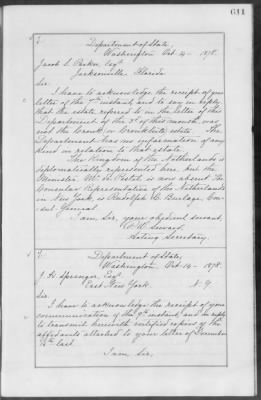 611
Department of State,
Washington Oct 14 - 1878.
Jacob S. Parker, Esqr.
Jacksonville, Florida
Sir
I have to acknowledge the receipt of your
letter of the 7th instant, and to say in reply
that the estate referred to in the letter of this
Department of the 3d of this month, was
not the Cronk or Cronkhite estate. The
Department has no information of any
kind in relation to that estate.
The Kingdom of the Netherlands is
diplomatically represented here, but the
Minister, Mr. de Pestel, is now absent. The
Consular Representative of the Netherlands
in New York, is Rudolph C. Burlage, Con-
sul General.
I am, Sir, your obedient servant,
F. W. Seward.
Acting Secretary.
Department of State,
Washington, Oct 14 - 1878.
J. H. Sprenger, Esqr.
East New York. N. Y.
Sir
I have to acknowledge the receipt of your
communication of the 9th instant, and in reply
to transmit herewith certified copies of the
affidavits attached to your letter of December
last.
I am, Sir,